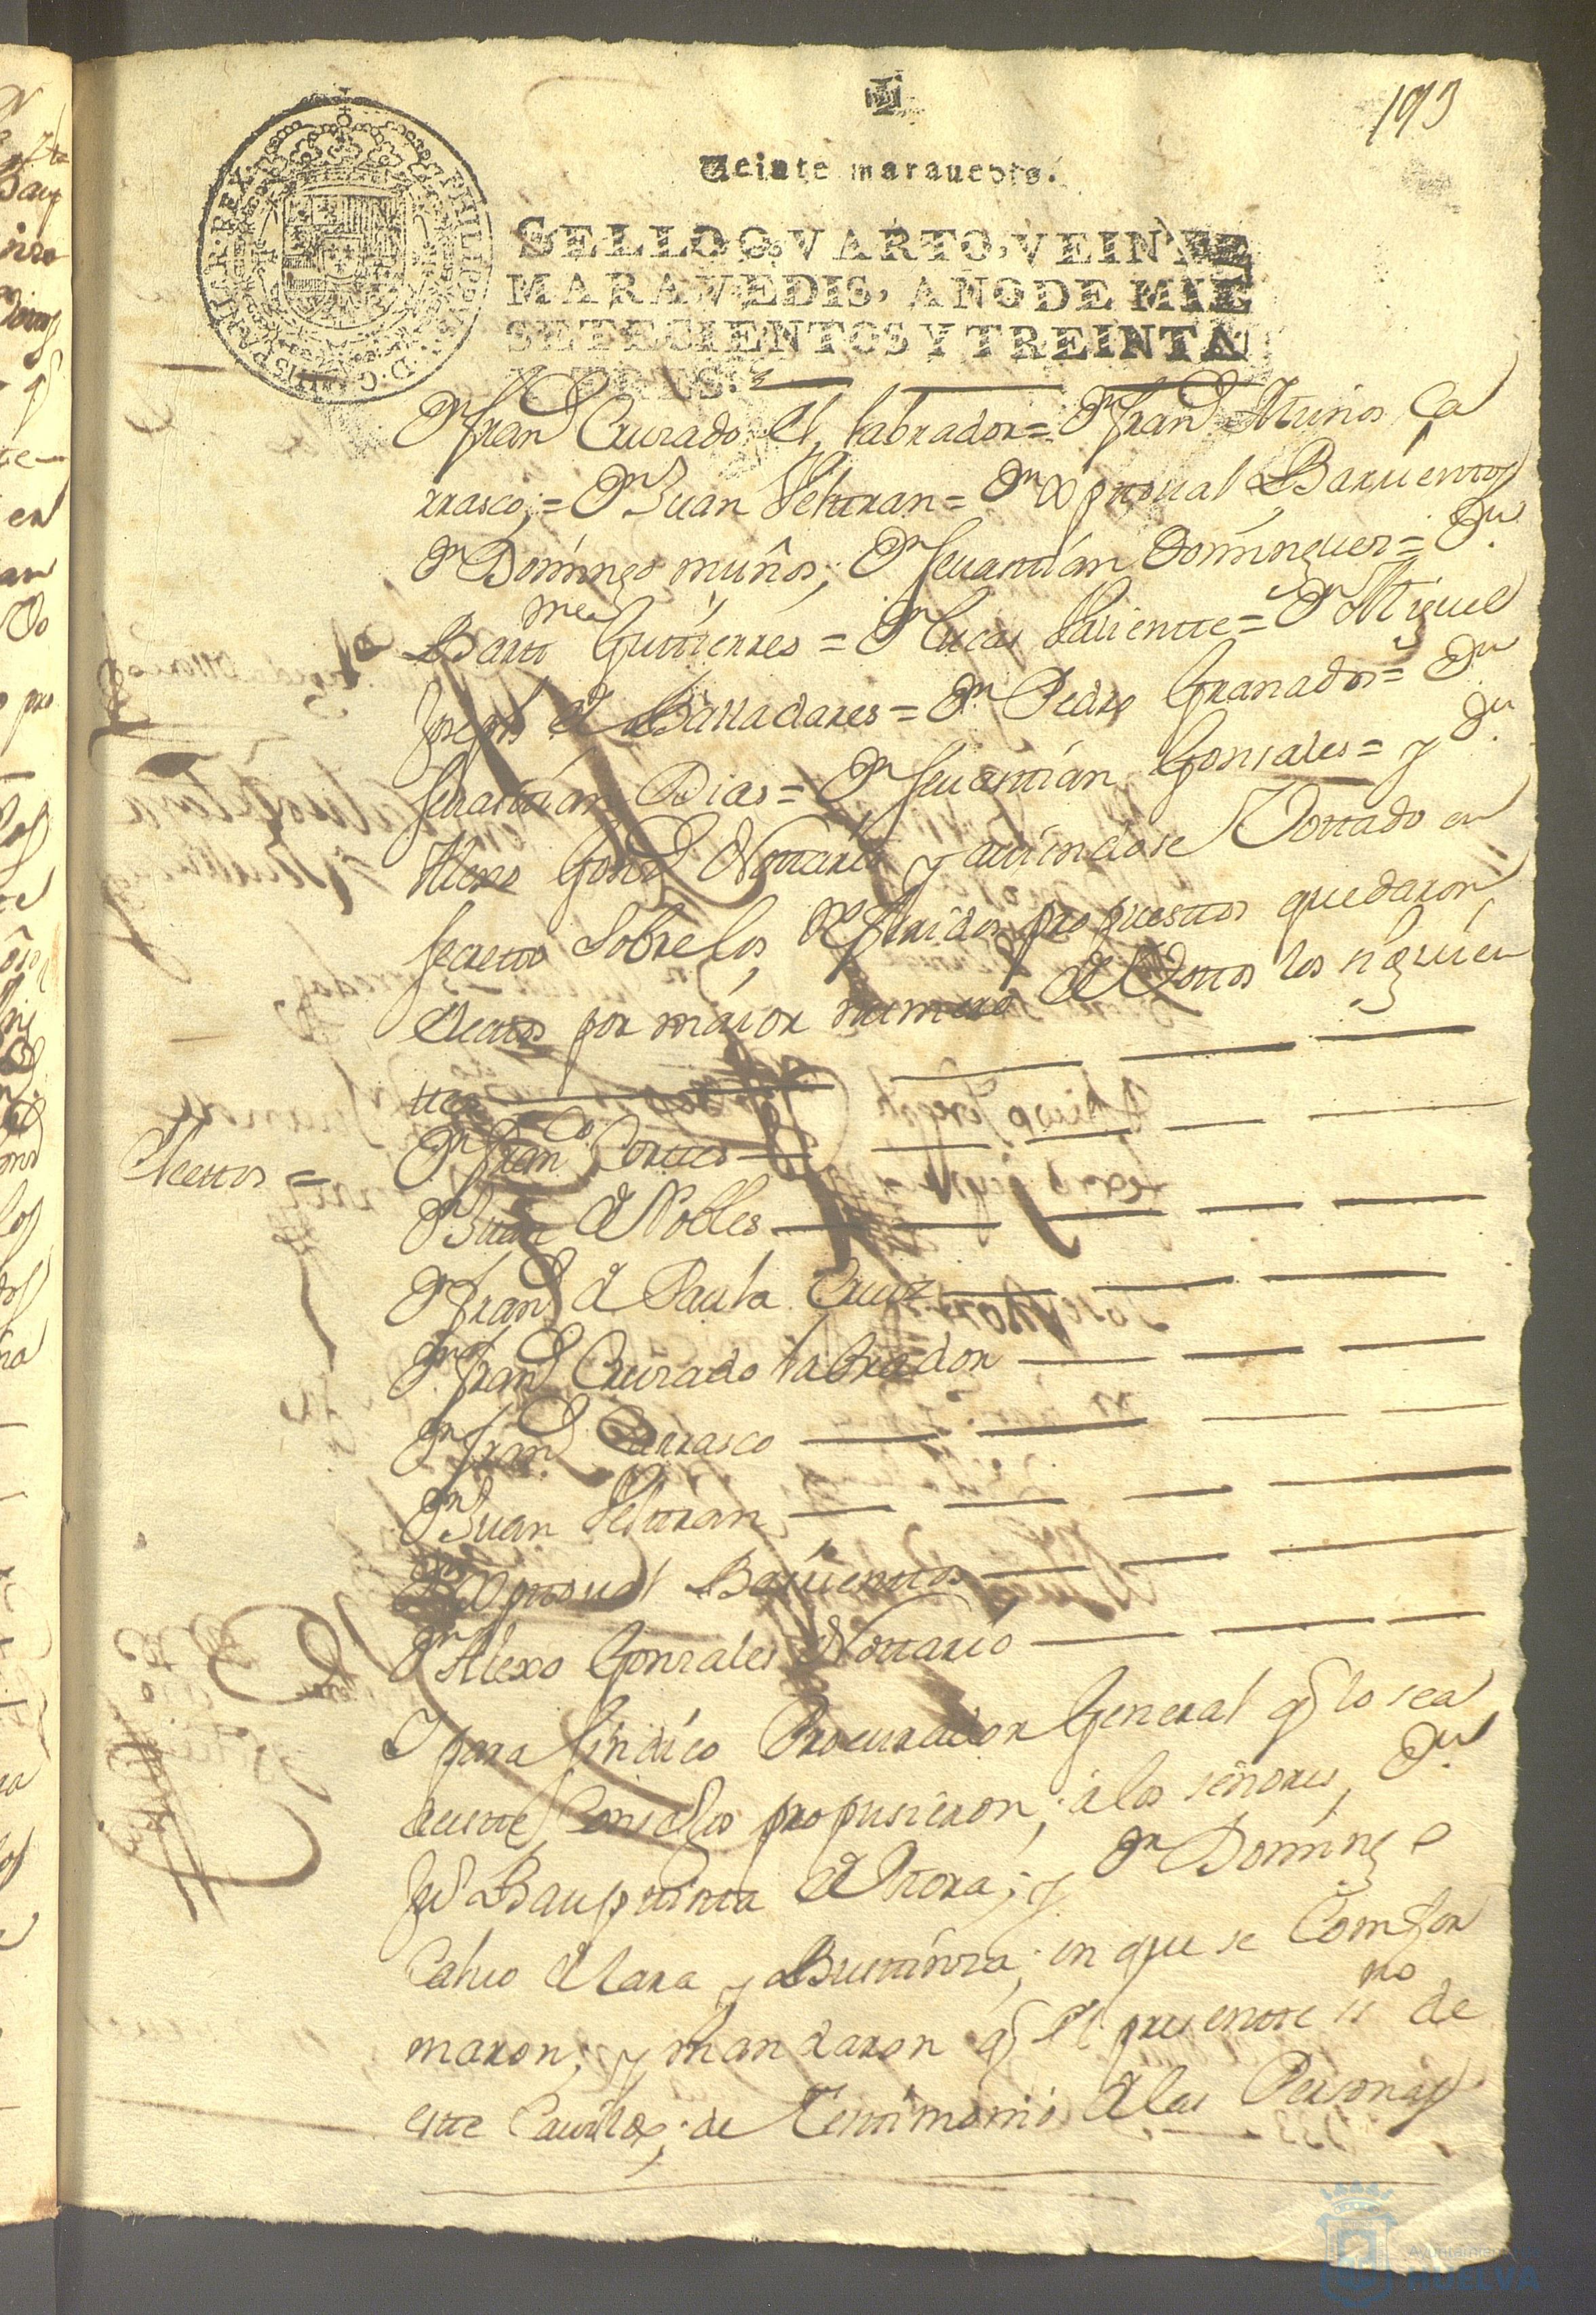 193
Veinte marauedis.
SELLO QVARTO, VEINTE
MARAVEDIS, AÑO DE MIL
SETECIENTOS Y TREINTA
Y TRES.
PHILIPPVS V D G HISPANIAR REX
Dn franco Crusado el labrador = Dn franco Muños Ca
rrasco; = Dn Juan Veltran = Dn Xptoual Barrientos
Dn Domingo muños; Dn seuastian Domingues = Dn
Bartme Gutierres = Dn Lucas Valientte = Dn Miguel
Joseph de Balladares = Dn Pedro Granados = Dn
seuastian Dias = Dn seuastian Gonsales = y Dn
Alexo Gonz Nottario y auiendose Vottado en
secretto sobre los Referidos propuesttos quedaron
electtos por maior numero de Vottos los siguien
ttes
Electtos =
Dn franco Corttes
Dn Juan de Nobles
Dn franco de Paula Cruz
Dn franco Crusado labrador
Dn franco Carrasco
Dn Juan Veltran
Dn Xptoual Barrienttos
Dn Alexo Gonzales Nottario
Y para sindico Procurador General q lo sea
de estte Consejo propusieron; a los señores, Dn
Ju Bauptista de Mora; y Dn Domingo
Caluo de Lara y Bustinza; en que se Comfor
maron; y mandaron q el presentte ssno de
este Cauildo; de Testtimonio a las Personas
Ayuntamiento
HUELVA